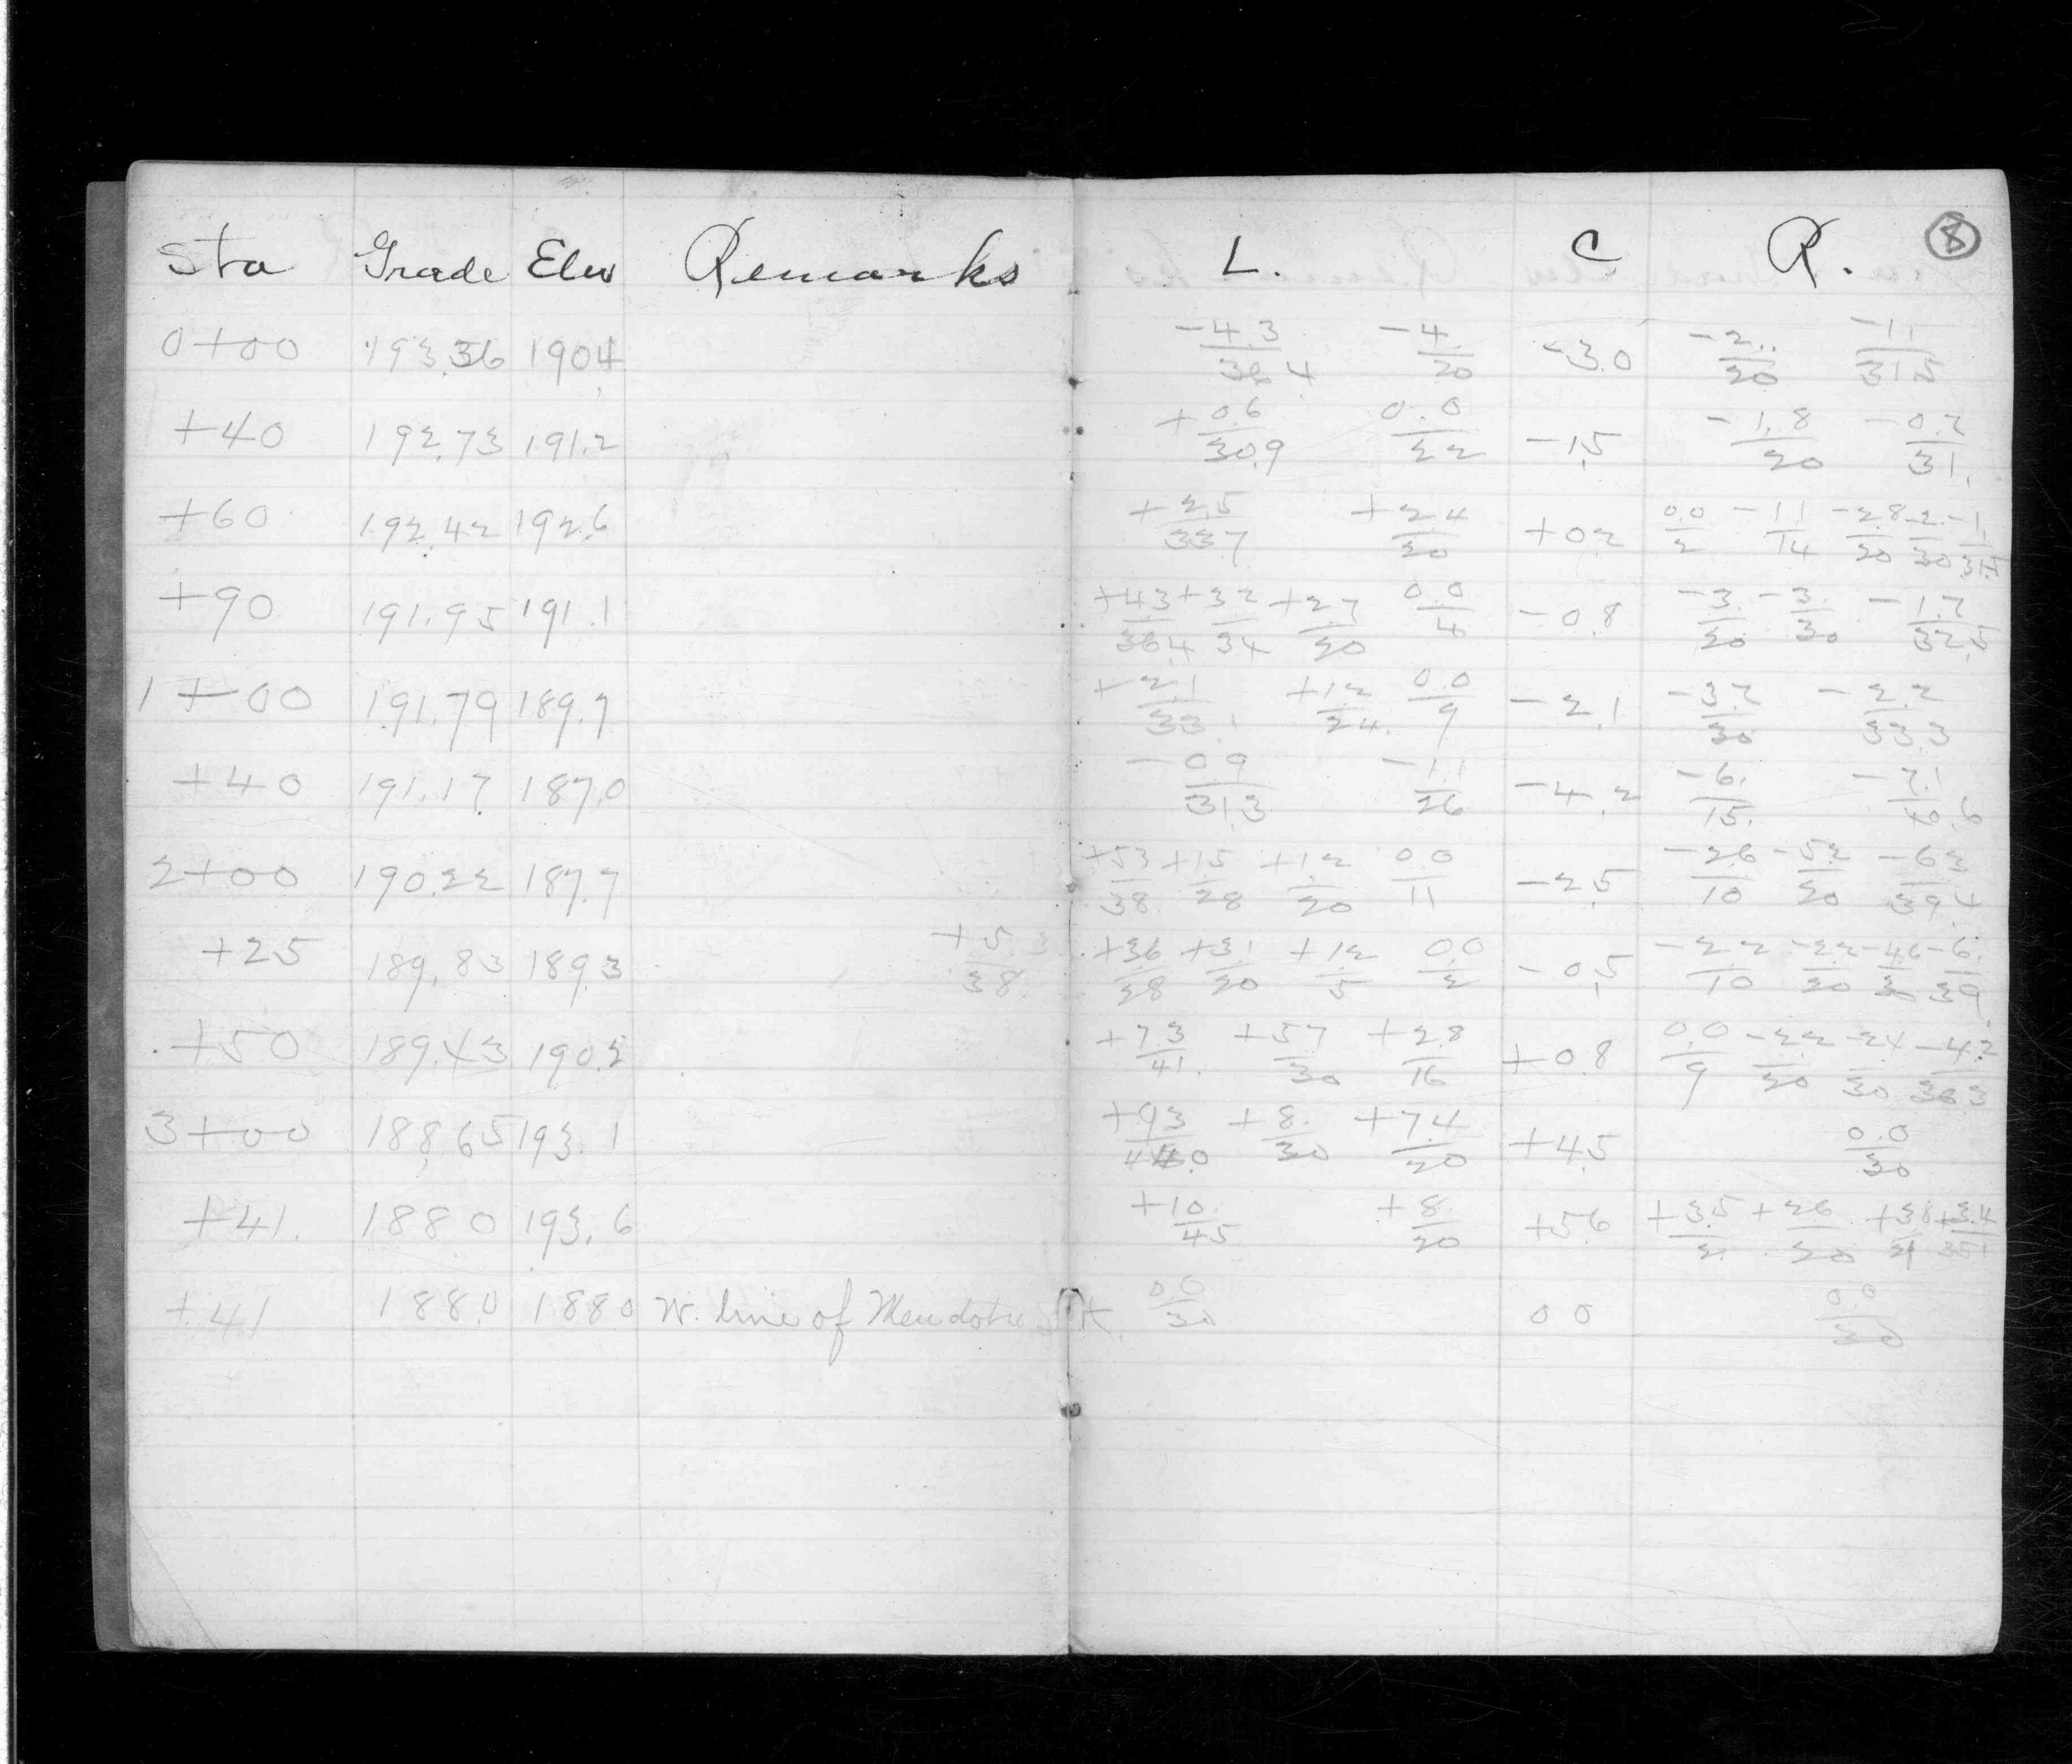 Sta Grade Elev Remarks L. C R. 8
0+00 193.36 190.4 -4.3/36.4 -4./20 -3.0 -2./20 -1.1/31.5
+40 192.73 191.2 +0.6/30.9 0.0/22 -1.5 -1.8/20 -0.7/31.
+60 192.42 192.6 +2.5/33.7 +2.4/20 +0.2 0.0/2 -1.1/14 -2.8/20 -2./30 -1./31.5
+90 191.95 191.1 +4.3/36.4 +3.2/34 +2.7/20 0.0/4 -0.8 -3./20 -3./30 -1.7/32.5
1+00 191.79 189.7 +2.1/33.1 +1.2/24. 0.0/9 -2.1 -3.7/30 -2.2/33.3
+40 191.17 187.0 -0.9/31.3 -1.1/26 -4.2 -6./15. -7.1/40.6
2+00 190.22 187.7 +5.3/38 +1.5/28 +1.2/20 0.0/11 -2.5 -2.6/10 -5.2/20 -6.3/39.4
+25 189.83 189.3 +5.3/38. +3.6/28 +3.1/20 +1.2/5 0.0/2 -0.5 -2.2/10 -2.2/20 -4.6/30 -6./39
+50 189.43 190.2 +7.3/41. +5.7/30 +2.8/16 +0.8 0.0/9 -2.2/20 -2.4/30 -4.2/36.3
3+00 188.65 193.1 +9.3/44.0 +8./30 +7.4/20 +4.5 0.0/30
+41. 188.0 193.6 +10./45 +8./20 +5.6 +3.5/2. +2.6/20 +3.8/29 +3.4/35.1
+41 188.0 188.0 W. line of Mendota St. 0.0/30 0.0 0.0/30